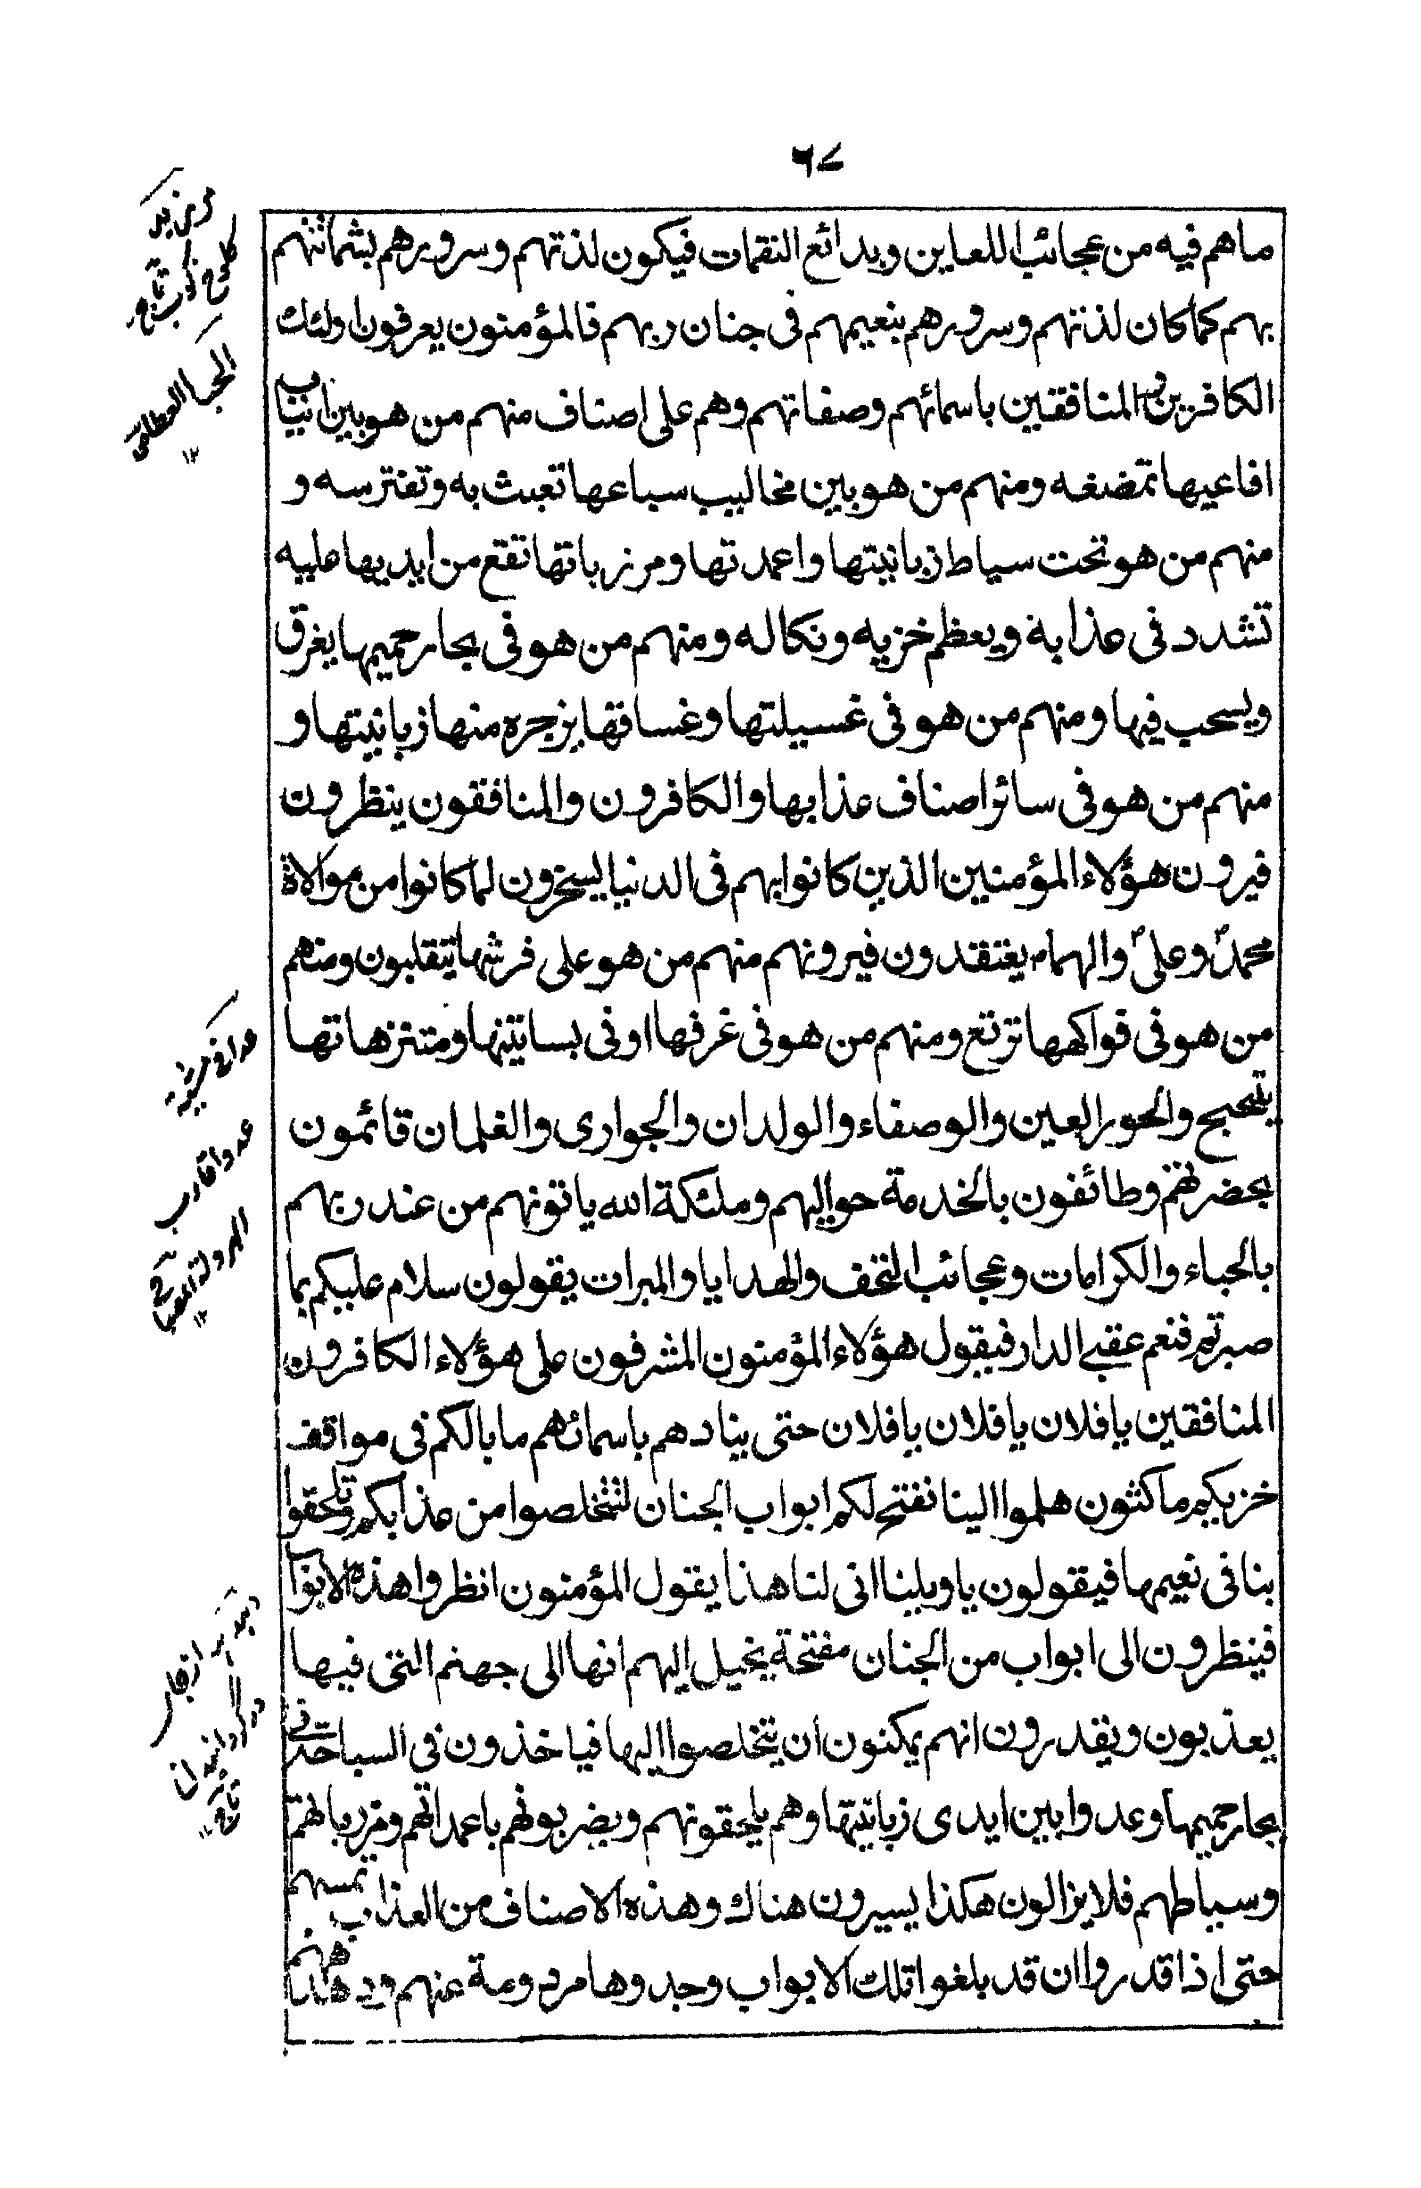 ٦٧
ما هم فيه من عجائب اللعاين وبدائع النقمات فيكون لذتهم وسرورهم بشماتتهم
بهم كما كان لذتهم وسرورهم بنعيمهم في جنان ربهم فالمؤمنون يعرفون اولئك
الكافرين والمنافقين باسمائهم وصفاتهم وهم على اصناف منهم من هو بين انياب
افاعيها تمضغه ومنهم من هو بين مخاليب سباعها تعبث به وتفترسه و
منهم من هو تحت سياط زبانيتها واعمدتها ومرزباتها تقع من ايديها عليه
تشدد في عذابه ويعظم خزيه ونكاله ومنهم من هو في بحار حميمها يغرق
ويسحب فيها ومنهم من هو في غسيلتها وغساقها يزجره منها زبانيتها و
منهم من هو في سائر اصناف عذابها والكافرون والمنافقون ينظرون
فيرون هؤلاء المؤمنين الذين كانوا بهم في الدنيا يسخرون لما كانوا من موالاة
محمد وعلي والهمام يعتقدون فيرونهم منهم من هو على فرشها يتقلبون ومنهم
من هو في فواكهها ترتع ومنهم من هو في غرفها او في بساتينها ومتنزهاتها
يتبحبح والحور العين والوصفاء والولدان والجواري والغلمان قائمون
بحضرتهم وطائفون بالخدمة حواليهم وملئكة الله ياتونهم من عند ربهم
بالحباء والكرامات وعجائب التحف والهدايا والمبرات يقولون سلام عليكم بما
صبرتم فنعم عقبى الدار فيقول هؤلاء المؤمنون المشرفون على هؤلاء الكافرون
المنافقين يا فلان يا فلان يا فلان حتى ينادهم باسمائهم ما بالكم في مواقف
خزيكم ماكثون هلموا الينا نفتح لكم ابواب الجنان لتتخلصوا من عذابكم وتلحقوا
بنا في نعيمها فيقولون يا ويلنا انى لنا هذا يقول المؤمنون انظروا هذه الابواب
فينظرون الى ابواب من الجنان مفتحة يخيل اليهم انها الى جهنم التي فيها
يعذبون ويقدرون انهم يمكنون ان يتخلصوا اليها فياخذون في السباحة في
بحار حميمها وعدوا بين ايدي زبانيتها وهم يلحقونهم ويضربونهم باعمدتهم ومرزباتهم
وسياطهم فلا يزالون هكذا يسيرون هناك وهذه الاصناف من العذاب تمسهم
حتى اذا قدروا ان قد بلغوا تلك الابواب وجدوها مردومة عنهم
الحبا العطا